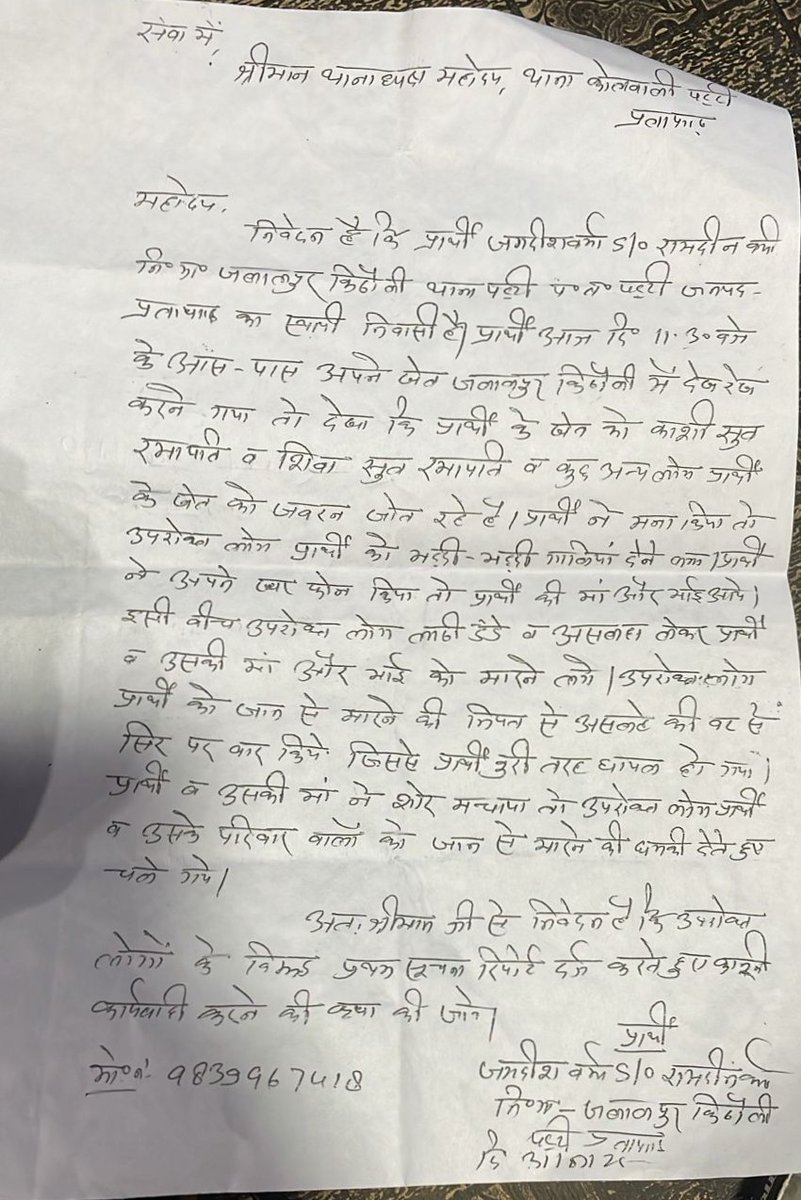 सेवा में,
श्रीमान थानाध्यक्ष महोदय, थाना कोतवाली पट्टी
प्रतापगढ़
महोदय,
निवेदन है कि प्रार्थी जगदीश वर्मा S/o रामदीन वर्मा
नि० ग्रा० जलालपुर किठौली थाना पट्टी प०त० पट्टी जनपद-
प्रतापगढ़ का स्थायी निवासी है। प्रार्थी आज दि० 11.30 बजे
के आस-पास अपने खेत जलालपुर किठौली में देखरेख
करने गया तो देखा कि प्रार्थी के खेत को काशी सुत
रमापति व शिवा सुत रमापति व कुछ अन्य लोग प्रार्थी
के खेत को जबरन जोत रहे हैं। प्रार्थी ने मना किया तो
उपरोक्त लोग प्रार्थी को भद्दी-भद्दी गालियां देने लगे। प्रार्थी
ने अपने घर फोन किया तो प्रार्थी की मां और भाई आये।
इसी बीच उपरोक्त लोग लाठी डंडे व असलहा लेकर प्रार्थी
व उसकी मां और भाई को मारने लगे। उपरोक्त लोग
प्रार्थी को जान से मारने की नियत से असलहे की बट से
सिर पर वार किये जिससे प्रार्थी बुरी तरह घायल हो गया।
प्रार्थी व उसकी मां ने शोर मचाया तो उपरोक्त लोग प्रार्थी
व उसके परिवार वालों को जान से मारने की धमकी देते हुए
चले गये।
अतः श्रीमान जी से निवेदन है कि उपरोक्त
लोगों के विरूद्ध प्रथम सूचना रिपोर्ट दर्ज करते हुए कानूनी
कार्यवाही करने की कृपा की जाये।
प्रार्थी
जगदीश वर्मा S/o रामदीन वर्मा
मो०नं. 9839967418
नि०ग्रा०- जलालपुर किठौली
पट्टी प्रतापगढ़
दि०